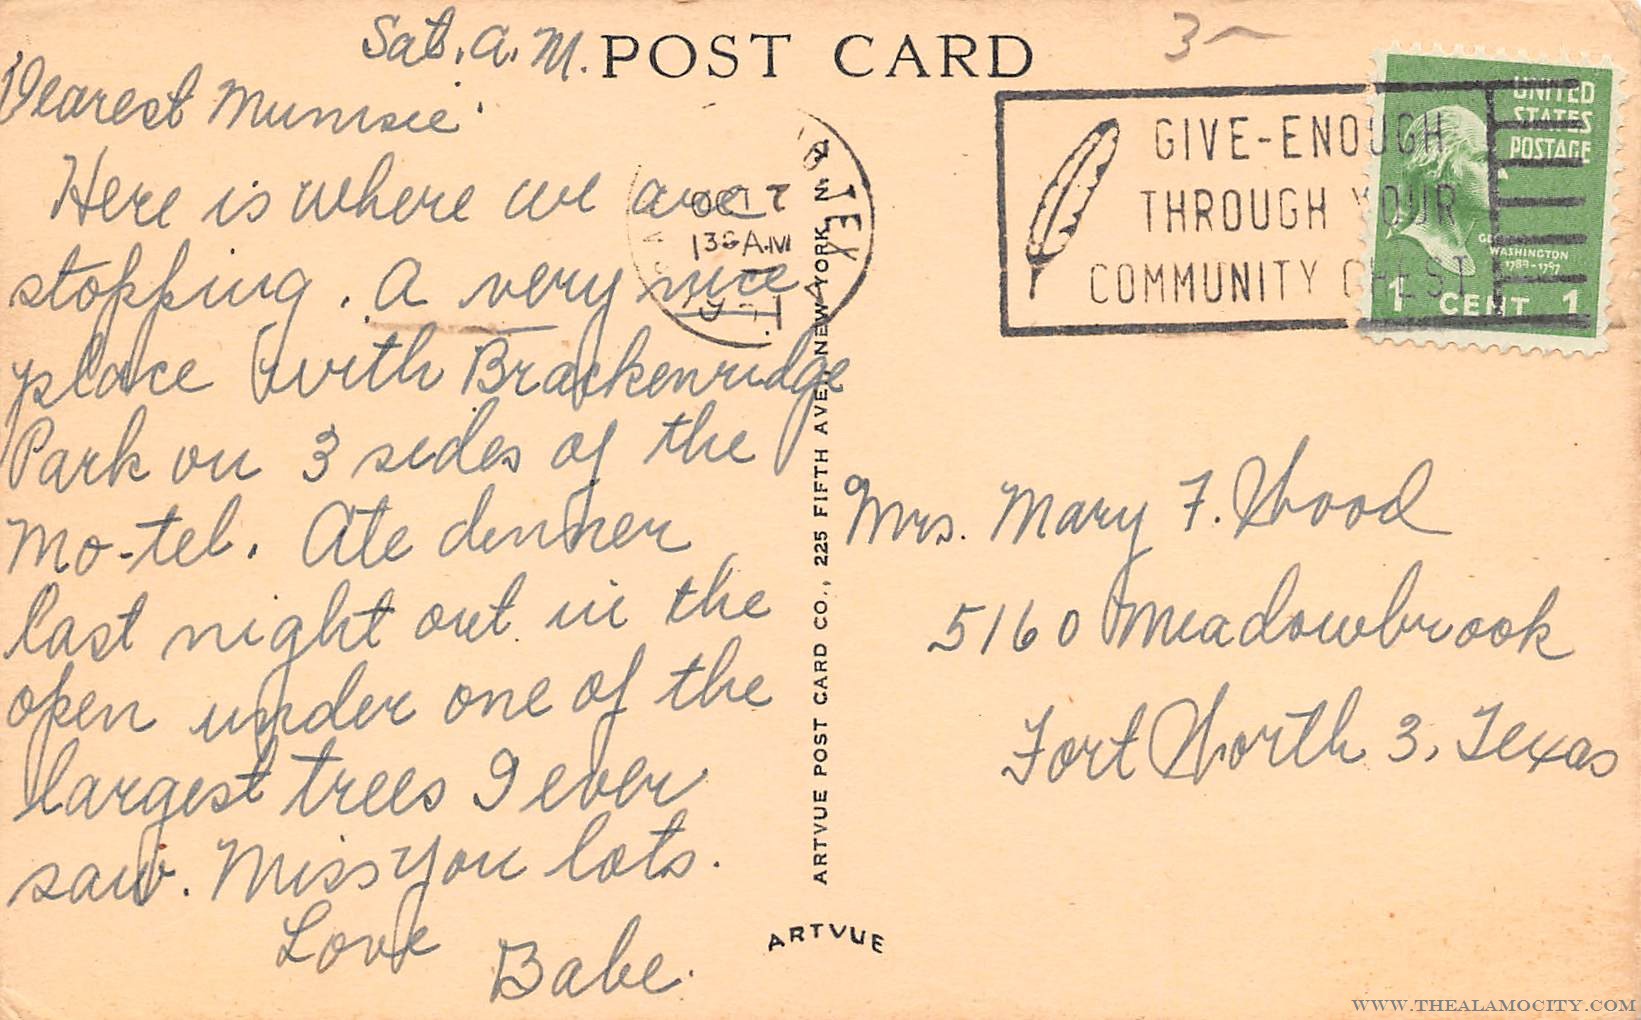 Sat. A.M.
POST CARD
3
Dearest Mumsie
Here is where we are
stopping. A very nice
place with Brackenridge
Park on 3 sides of the
Mo-tel. Ate dinner
last night out in the
open under one of the
largest trees I ever
saw. Miss you lots.
Love
Babe.
OCT 7
130 AM
TEX
ARTVUE POST CARD CO., 225 FIFTH AVE., NEW YORK, N.Y.
ARTVUE
GIVE-ENOUGH
THROUGH YOUR
COMMUNITY CHEST
UNITED
STATES
POSTAGE
WASHINGTON
1789-1797
1 CENT 1
Mrs. Mary F. Wood
5160 Meadowbrook
Fort Worth 3, Texas
WWW.THEALAMOCITY.COM